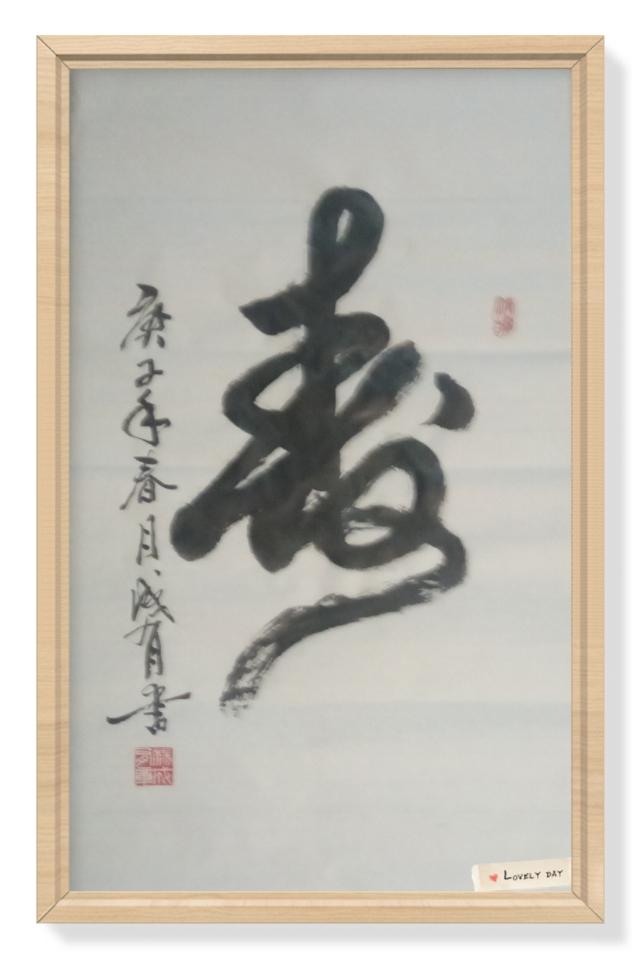 寿
庚子年春月成有書
LOVELY DAY